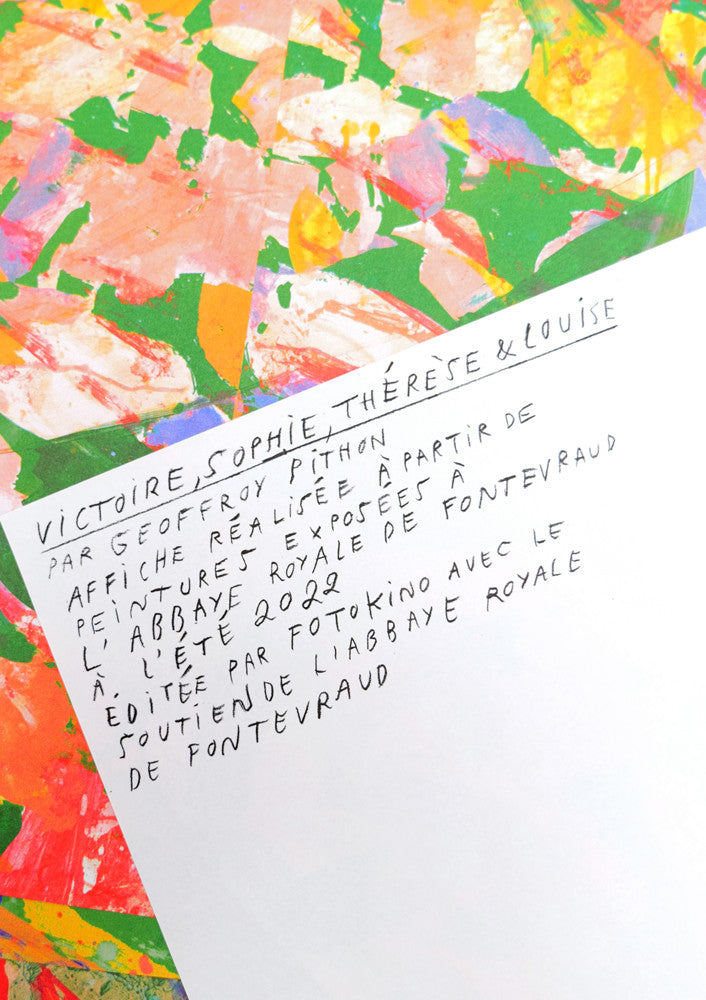 VICTOIRE, SOPHIE, THÉRÈSE & LOUISE
PAR GEOFFROY PITHON
AFFICHE RÉALISÉE À PARTIR DE
PEINTURES EXPOSÉES À
L'ABBAYE ROYALE DE FONTEVRAUD
À L'ÉTÉ 2022
EDITÉE PAR FOTOKINO AVEC LE
SOUTIEN DE L'ABBAYE ROYALE
DE FONTEVRAUD